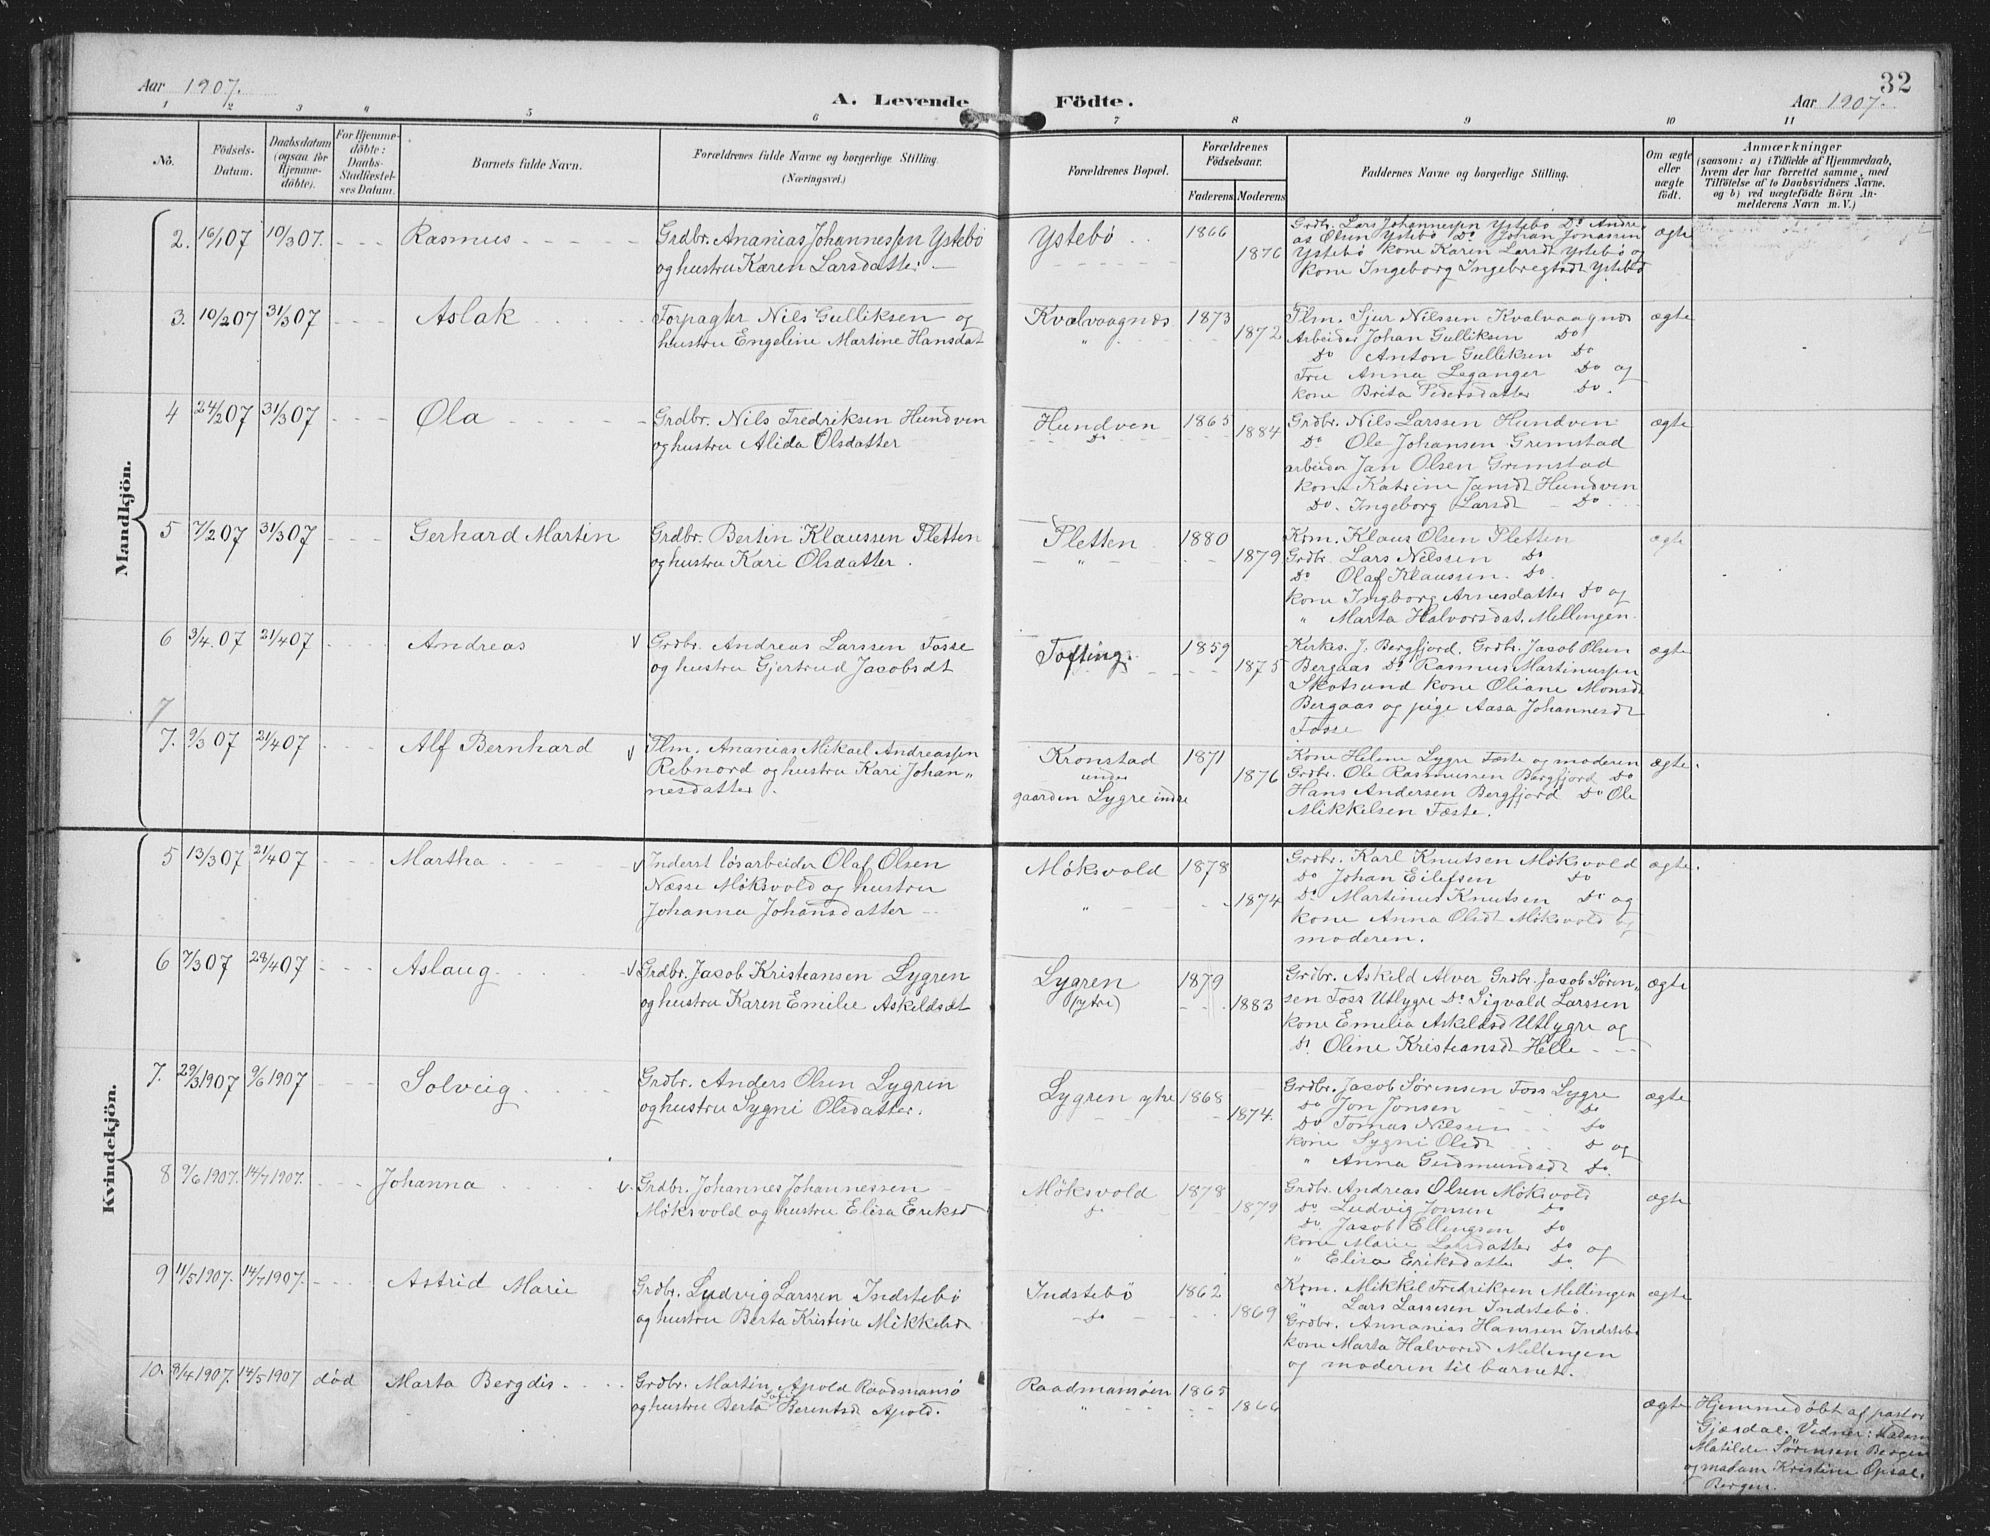 Aar 1907.
A. Levende Födte.
Aar 1907.
32
1 2 3 " 5 6 7 8 9 10 11
No.
Födsels-
Datum.
Daabsdatum
(ogsaa for
Hjemme-
döbte).
For Hjemme-
döbte:
Daabs-
Stadfæstel-
ses Datum.
Barnets fulde Navn.
Forældrenes fulde Navne og borgerlige Stilling.
(Næringsvei.)
Forældrenes Bopæl.
Forældrenes
Födselsaar.
Faderens Moderens
Faddernes Navne og borgerlige Stilling.
Om ægte
eller
uægte
födt.
Anmærkninger
(saasom: a) i Tilfælde af Hjemmedaab,
hvem der har forrettet samme, med
Tilföielse af to Daabsvidners Navne,
og b) ved uægtefödte Börn An-
melderens Navn m. V.)
Mandkjön.
2. 16/1 07 10/3 07. Rasmus
Grdbr. Ananias Johannessen Ystebø
og hustru Karen Larsdatter
Ystebø 1866 1876
Grdbr. Lars Johannessen Ystebø Do Andre
as Olsen Ystebø Do Johan Jonassen
Ystebø kone Karen Larsdt Ystebø og
kone Ingeborg Ingebregtsdt Ystebø
ægte
3. 10/2 07 31/3 07 Aslak
Forpagter Nils Gulliksen og
hustru Engeline Martine Hansdat
Kvalvaagnes 1873 1872
Flm. Sjur Nilssen Kvalvaagnes
Arbeider Johan Gulliksen Do
Do Anton Gulliksen Do
Fru Anna Leganger Do og
kone Brita Pedersdatter Do.
ægte
4 24/2 07 31/3 07 Ola
Grdbr. Nils Fredriksen Hundven
og hustru Alida Olsdatter
Hundven 1865 1884
Do
Grdbr. Nils Larssen Hundven
Do Ole Johansen Grimstad
arbeider Jan Olsen Grimstad
kone Katrine Jansdt Hundven
Do. Ingeborg Larsdt Do
ægte
5 7/2 07 31/3 07 Gerhard Martin
Grdbr. Bertin Klaussen Pletten
og hustru Kari Olsdatter.
Pletten 1880 1879
Kom. Klaus Olsen Pletten
Grdbr. Lars Nilssen Do
Do Olaf Klaussen. Do.
kone Ingborg Arnesdatter Do og
" Marta Halvorsdat. Mellingen
ægte
6 3/4. 07 21/4 07 Andreas v
Grdbr. Andreas Larssen Fosse
og hustru Gjertrud Jacobsdt
Tofting. 1859 1875
Kirkes. J. Bergfjord. Grdbr. Jacob Olsen
Bergaas Do Rasmus Martinussen
Skotsund kone Oliane Monsdt
Bergaas og pige Aasa Johannesdt
Fosse
ægte
7
7. 9/3 07 21/4 07 Alf Bernhard v
Flm. Ananias Mikael Andreassen
Rebnord og hustru Kari Johan"
nesdatter.
Kronstad 1871 1876
under
gaarden Lygre indre
Kone Helene Lygre Fæste og moderen
Grdbr. Ole Rasmussen Bergfjord Do
Hans Andersen Bergfjord Do Ole
Mikkelsen Fæste.
ægte
Kvindekjön.
5 13/3 07 21/4 07 Martha v
Inderst løsarbeider Olaf Olsen
Næsse Møksvold og hustru
Johanna Johansdatter
Møksvold 1878 1874
Grdbr. Karl Knutsen Møksvold
Do Johan Eilefsen Do
Do Martinus Knutsen Do og
kone Anna Olsdt Møksvold og
moderen.
ægte
6 7/3 07 28/4 07 Aslaug v
Grdbr. Jacob Kristeansen Lygren
og hustru Karen Emilie Askeldsdt
Lygren 1879 1883
(ytre)
Grdbr. Askeld Alver Grdbr. Jacob Søren"
sen Foss Utlygre Do Sigvald Larssen
kone Emelia Askeldsd Utlygre og
Do Oline Kristeansdt Helle
ægte
7. 29/3 1907 9/6 1907 Solveig
Grdbr. Anders Olsen Lygren
og hustru Sygni Olsdatter.
Lygren ytre 1868 1874.
Grdbr. Jacob Sørensen Foss Lygre
Do Jon Jonsen Do
Do Tomas Nilssen Do
kone Sygni Olsdt D og
" Anna Gudmundsdt Do.
ægte
8 9/6 1907. 14/7 1907. Johanna v.
Grdbr. Johannes Johannessen
Møksvold og hustru Elisa Eriksd
Møksvold 1878 1879
Do
Grdbr. Andreas Olsen Møksvold
Do Ludvig Jonsen Do
Do. Jacob Ellingsen Do
kone Marie Larsdatter Do og
" Elisa Eriksdatter Do.
ægte
9 11/5 1907. 14/7 1907. Astrid Marie
Grdbr. Ludvig Larssen Indstebø
og hustru Berta Kristine Mikkelsd
Indstebø 1862 1869
Do
Kom. Mikkel Fredriksen Mellingen
" Lars Larssen Indstebø.
Grdbr. Annanias Hanssen Indstebø
kone Marta Halvorsd Mellingen
og moderen til barnet.
ægte
10. 8/4 1907. 14/5 1907 død Marta Bergdis.
Grdbr. Martin Apold Raadmansø
og hustru Berta Sofie Berentsd Apold.
Raadmansøen 1865 1866
ægte
Hjemmedøbt af pastor
Gjæsdal. Vidner: Madam
Matilde Sørensen Bergen
og madam Kristine Opsal.
Bergen.